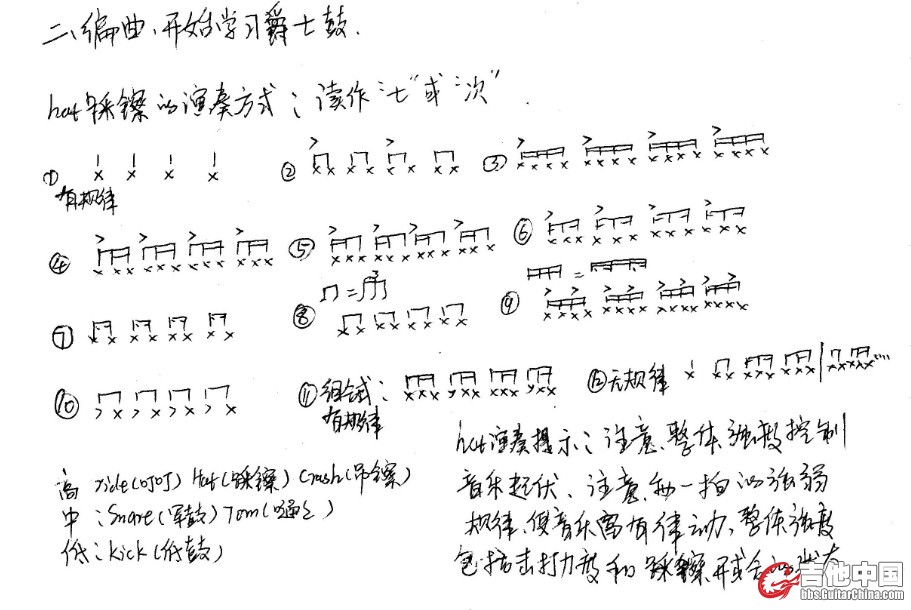 二、编曲、开始学习爵士鼓.
hat踩镲的演奏方式：读作“七”或“次”
① ② ③
有规律
④ ⑤ ⑥
⑦ ⑧ ⑨
⑩ ⑪组合式： ⑫无规律
有规律
hat演奏提示：注意整体强度控制
音乐起伏、注意每一拍的强弱
规律,使音乐富有律动,整体强度
包括击打力度和踩镲开合的状态
高 Ride(叮叮) Hat(踩镲) Crash(吊镲)
中：Snare(军鼓) Tom(嗵)
低：kick(低鼓)
吉他中国
bbs.GuitarChina.com